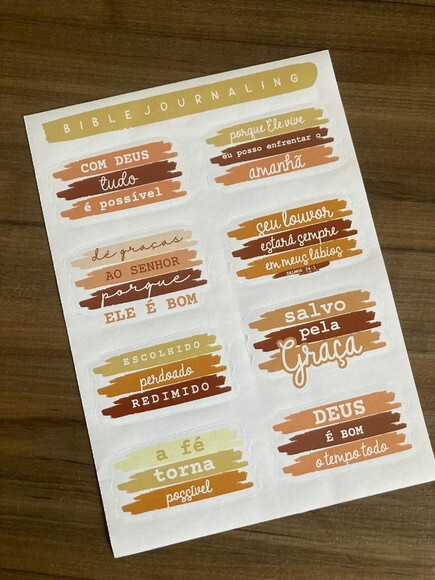 BIBLE JOURNALING
COM DEUS
tudo
é possível
porque Ele vive
eu posso enfrentar o
amanhã
dê graças
AO SENHOR
porque
ELE É BOM
seu louvor
estará sempre
em meus lábios
Salmos 34:1
ESCOLHIDO
perdoado
REDIMIDO
salvo
pela
Graça
a fé
torna
possível
DEUS
É BOM
o tempo todo